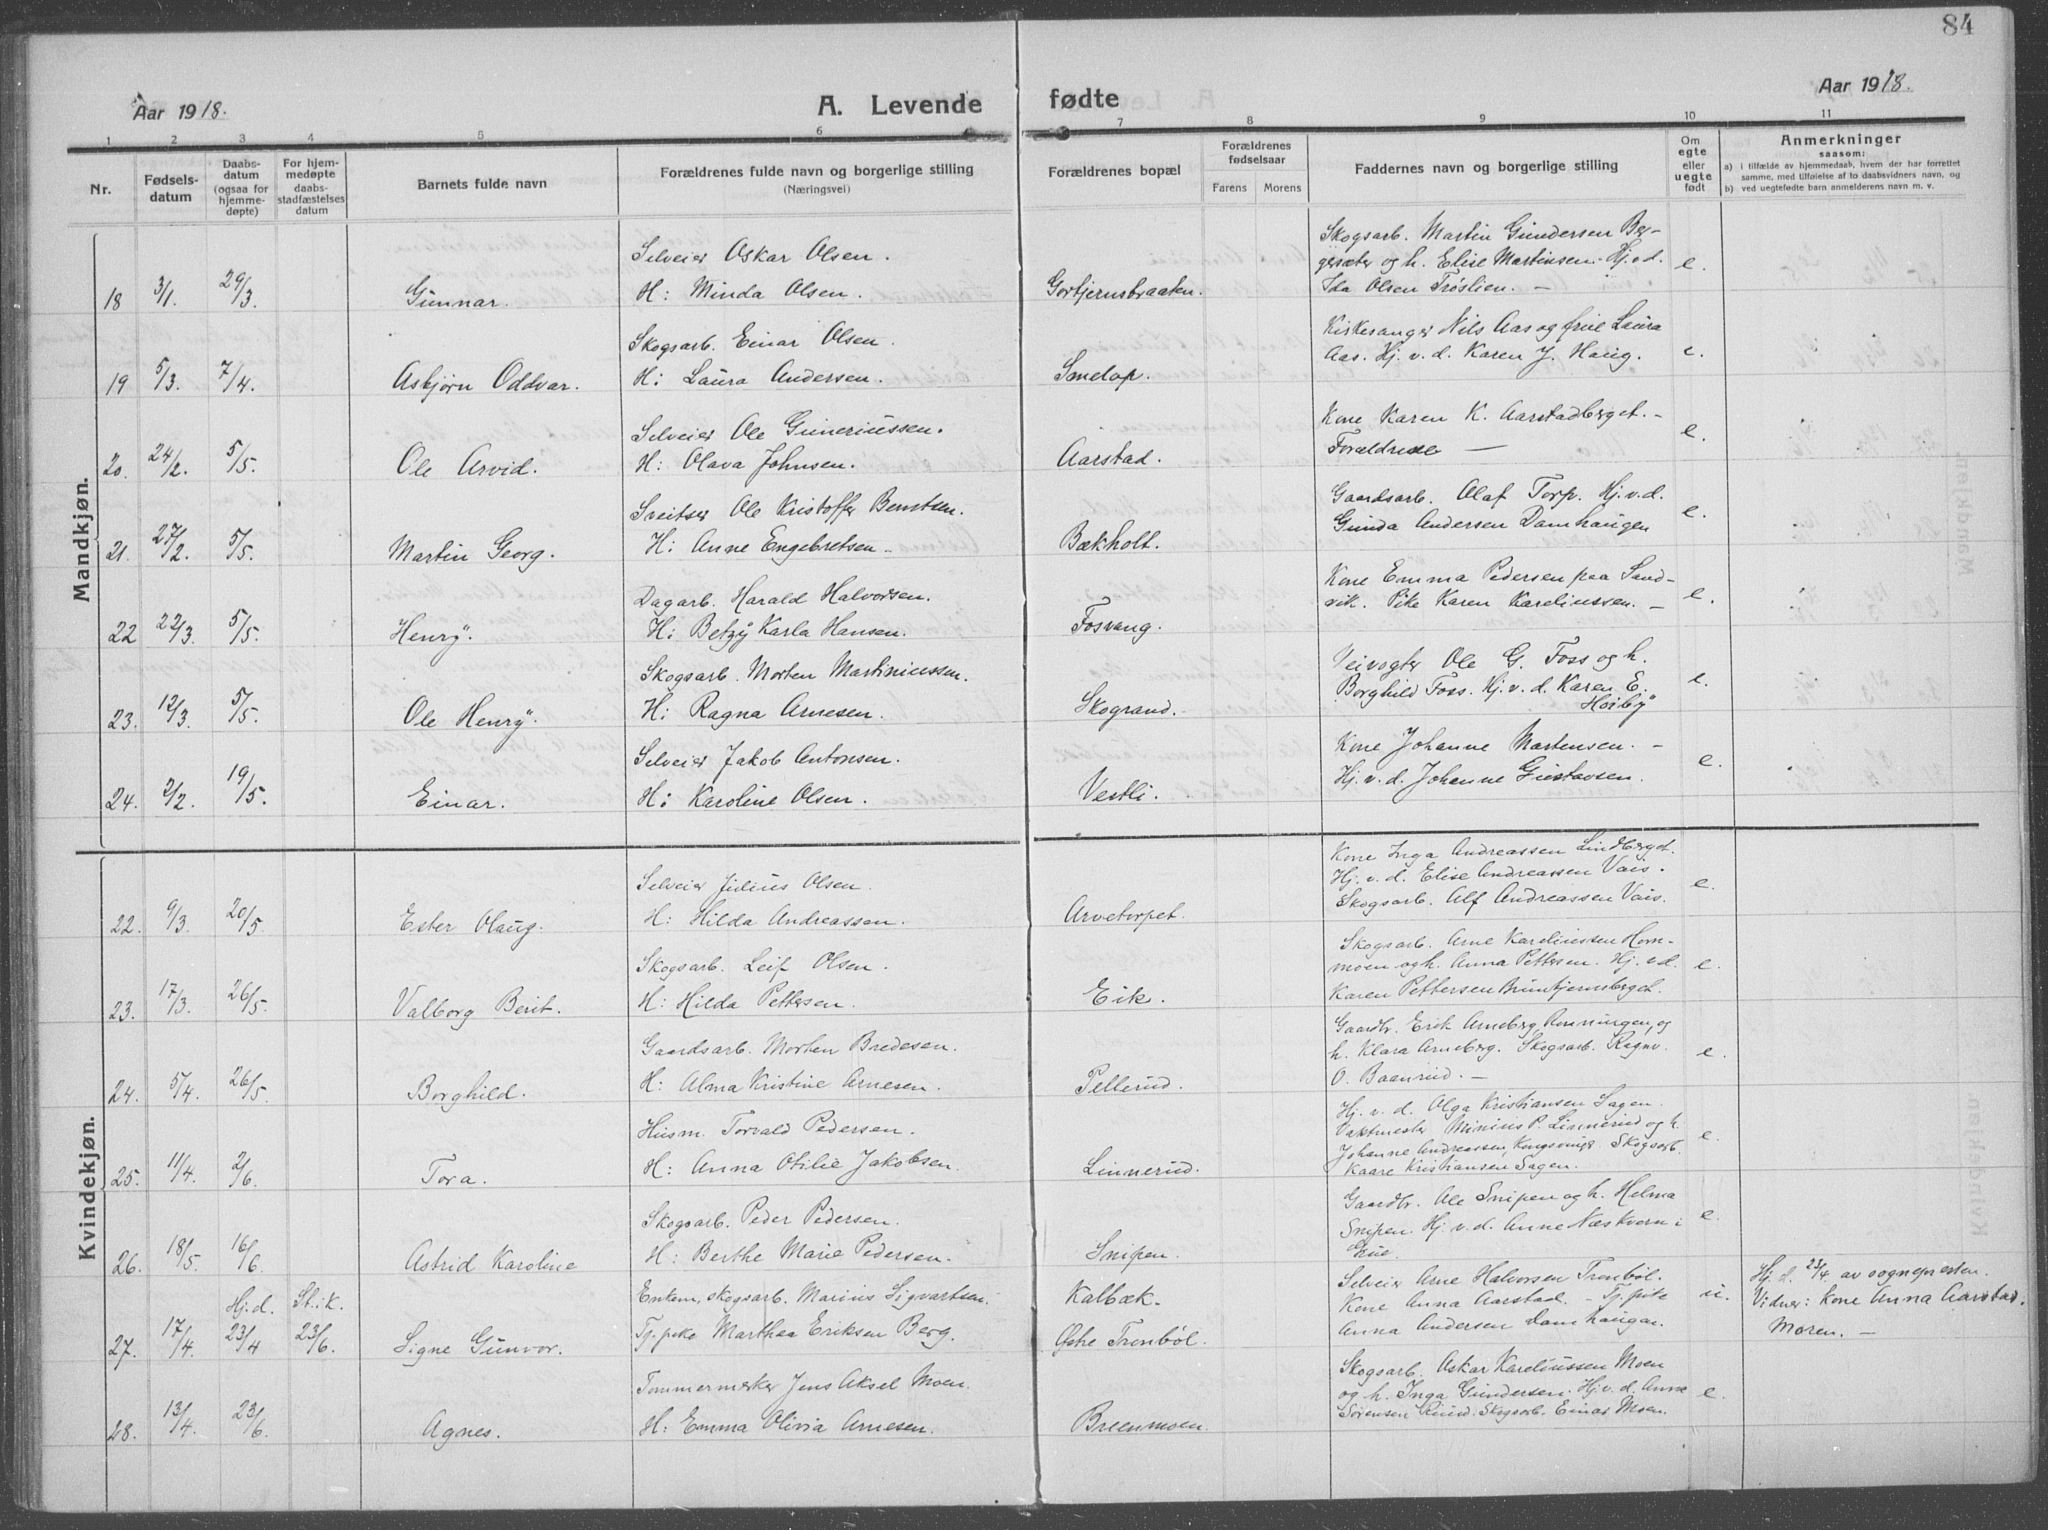 84
Aar 1918. A. Levende fødte Aar 1918.
1 2 3 4 5 6 7 8 9 10 11
Nr.
Fødsels-
datum
Daabs-
datum
(ogsaa for
hjemme-
døpte)
For hjem-
medøpte
daabs-
stadfæstelses
datum
Barnets fulde navn
Forældrenes fulde navn og borgerlige stilling
(Næringsvei)
Forældrenes bopæl
Forældrenes
fødselsaar
Farens Morens
Faddernes navn og borgerlige stilling
Om
egte
eller
uegte
født
Anmerkninger
saasom:
a) i tilfælde av hjemmedaab, hvem der har forrettet
samme, med tilføielse af to daabsvidners navn, og
b) ved uegtefødte barn anmelderens navn m. v.
Mandkjøn.
18 3/1. 29/3. Gunnar.
Selveier Oskar Olsen.
H: Minda Olsen.
Gortjernsbraaten.
Skogsarb. Martin Gundersen Ber-
gersæter og h. Elise Martinsen. Hj.v.d.
Ida Olsen Trøslien. —
e.
19 5/3. 7/4. Asbjørn Oddvar.
Skogsarb. Einar Olsen.
H: Laura Andersen.
Smedop.
Kirkesanger Nils Aas og frue Laura
Aas. Hj. v. d. Karen J. Haug.
e.
20. 24/2. 5/5. Ole Arvid.
Selveier Ole Guneriussen.
H: Olava Johnsen.
Aarstad.
Kone Karen K. Aarstadberget. —
Forældrene —
e.
21. 27/2. 5/5. Martin Georg.
Sveitser Ole Kristoffer Berntsen.
H: Anne Engebretsen.
Bækholt.
Gaardsarb. Olaf Torp. Hj.v.d.
Gunda Andersen Damhaugen
e.
22 22/3. 5/5. Henry.
Dagarb. Harald Halvorsen.
H: Betzy Karla Hansen.
Fosvang.
Kone Emma Pedersen paa Sand-
vik. Pike Karen Kareliussen. —
e.
23. 12/3. 5/5. Ole Henry.
Skogsarb. Morten Martiniussen.
H: Ragna Arnesen.
Skogrand.
Veivogter Ole G. Foss og h.
Borghild Foss. Hj. v. d. Karen E.
Høiby
e.
24. 2/2. 19/5. Einar.
Selveier Jakob Antonsen.
H: Karoline Olsen.
Vestli.
Kone Johanne Martensen. —
Hj. v. d. Johanne Gustavsen.
e.
Kvindekjøn.
22. 9/3. 20/5. Ester Olaug.
Selveier Julius Olsen.
H: Hilda Andreassen.
Arvetorpet.
Kone Inga Andreassen Lindberget.
Hj. v. d. Elise Andreassen Vais.
Skogsarb. Alf Andreassen Vais.
e.
23. 17/3. 26/5. Valborg Berit.
Skogsarb. Leif Olsen.
H: Hilda Pettersen.
Eik.
Skogsarb. Arne Kareliussen Horn-
moen og h. Anna Pettersen. Hj. v.d.
Karen Pettersen Bruntjernsberget.
e.
24. 5/4. 26/5. Borghild.
Gaardsarb. Morten Bredesen.
H: Alma Kristine Arnesen.
Pellerud.
Gaardbr. Erik Arneberg, Rønningen, og
h. Klara Arneberg. Skogsarb. Ragnv.
O. Baanrud. —
e.
25. 11/4. 2/6. Tora.
Husm. Torvald Pedersen.
H: Anna Otilie Jakobsen.
Linnerud.
Hj. v. d. Olga Kristiansen Sagen.
Vaktmester Minius P. Linnerud og h.
Johanne Andreassen, Kongsvinger. Skogsarb.
Kaare Kristiansen Sagen.
e.
26. 18/5. 16/6. Astrid Karoline
Skogsarb. Peder Pedersen.
H: Berthe Marie Pedersen.
Snipen.
Gaardbr. Ole Snipen og h. Helma
Snipen. Hj. v. d. Anne Næskvern i
e.
27. 17/4. Hj.d. 23/4 St.i k. 23/6. Signe Gunvor.
Enkem., skogsarb. Marius Sigvartsen.
Tj. pike Marthea Eriksen Berg.
Kalbæk.
Østre Tronbøl.
Selveier Arne Halvorsen Tronbøl.
Kone Anna Aarstad. — Tj. pike
Anna Andersen Damhaugen.
u.
Hj. d. 23/4. av sognepresten.
Vidner: Kone Anna Aarstad.
Moren. —
28. 13/4. 23/6. Agnes.
Tømmermerker Jens Aksel Moen.
H: Emma Olivia Arnesen.
Breenmoen.
Skogsarb. Oskar Kareliussen Moen
og h. Inga Gundersen. Hj. v. d. Anne
Sørensen Ruud. Skogsarb. Einar Moen.
e.